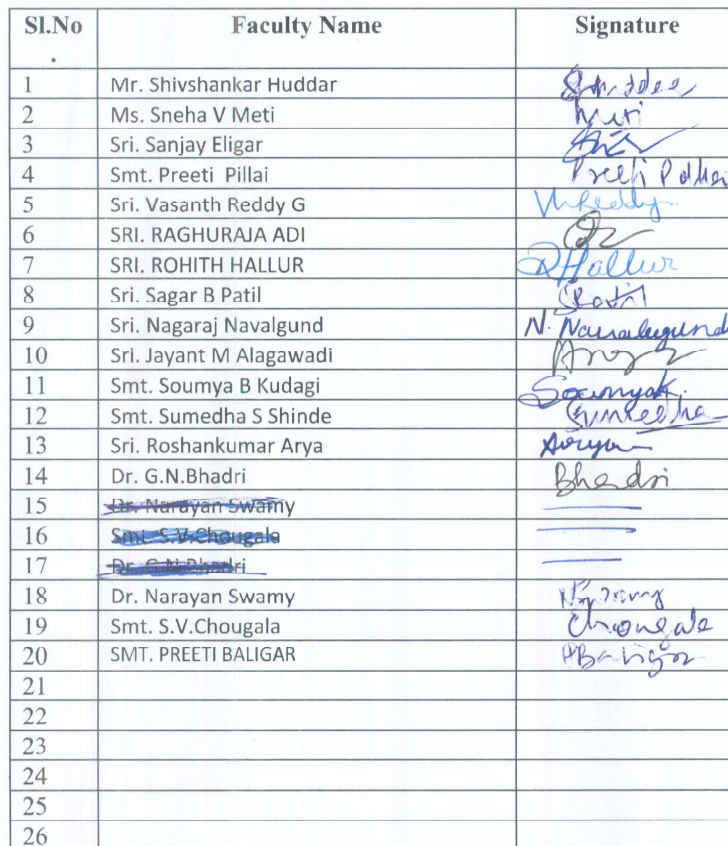 Sl.No Faculty Name Signature
.
1 Mr. Shivshankar Huddar
2 Ms. Sneha V Meti Meti
3 Sri. Sanjay Eligar
4 Smt. Preeti Pillai Preeti
5 Sri. Vasanth Reddy G VhReddy
6 SRI. RAGHURAJA ADI
7 SRI. ROHITH HALLUR RHallur
8 Sri. Sagar B Patil SPatil
9 Sri. Nagaraj Navalgund N. Navalugund
10 Sri. Jayant M Alagawadi
11 Smt. Soumya B Kudagi SoumyaK.
12 Smt. Sumedha S Shinde Sumedha
13 Sri. Roshankumar Arya Aarya
14 Dr. G.N.Bhadri Bhadri
15 Dr. Narayan Swamy
16 Smt. S.V.Chougala
17 Dr. G.N.Bhadri
18 Dr. Narayan Swamy
19 Smt. S.V.Chougala Chougale
20 SMT. PREETI BALIGAR PBaligar
21
22
23
24
25
26